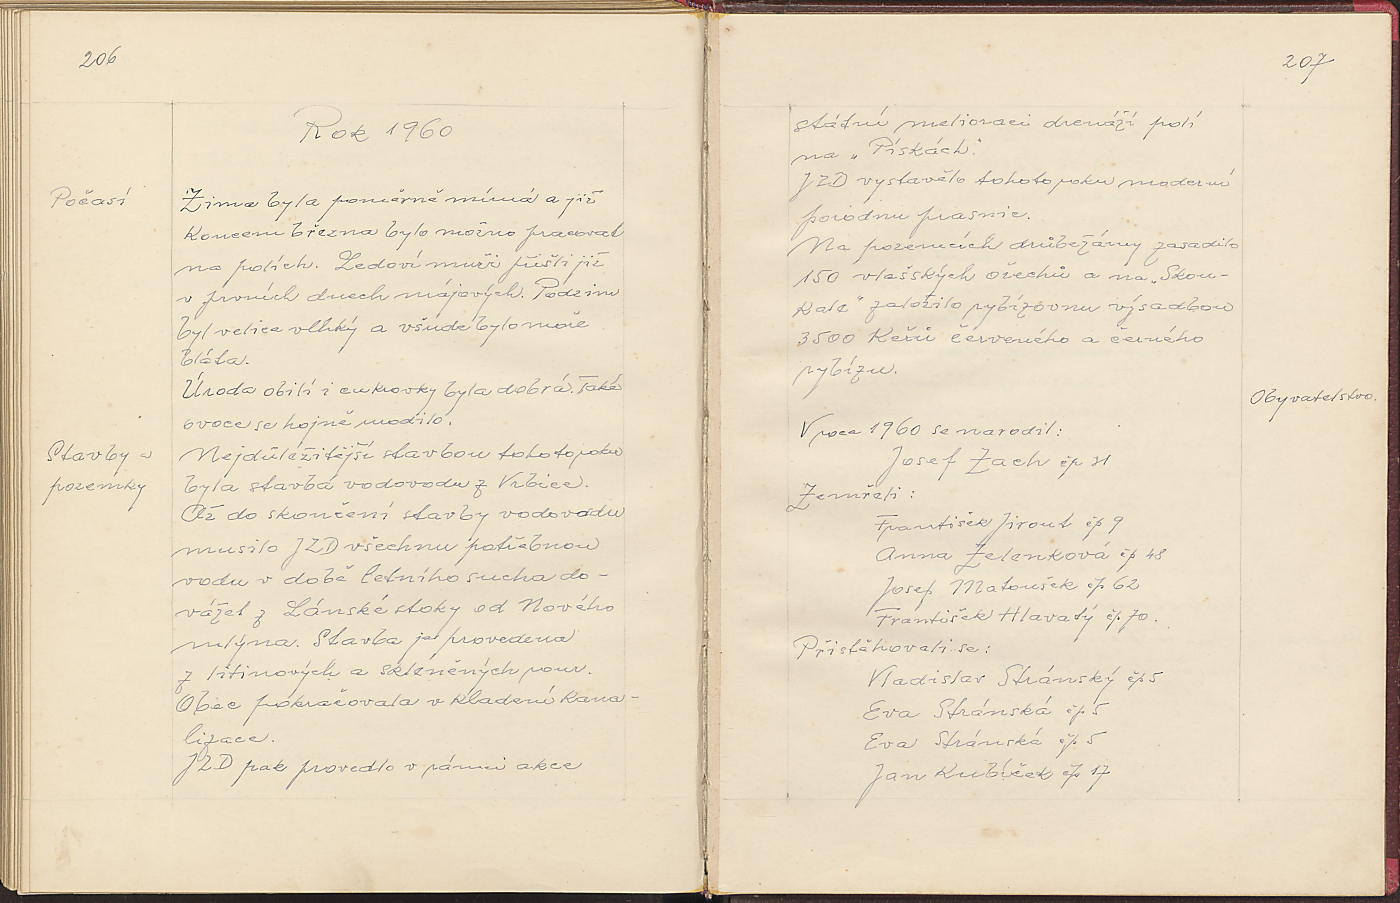 206
Rok 1960
Počasí
Zima byla poměrně mírná a již
koncem března bylo možno pracovat
na polích. Ledoví muži přišli již
v prvních dnech májových. Podzim
byl velice vlhký a všude bylo moře
bláta.
Úroda obilí i cukrovky byla dobrá. Také
ovoce se hojně urodilo.
Stavby a
pozemky
Nejdůležitější stavbou tohoto roku
byla stavba vodovodu z Vrbice.
Až do skončení stavby vodovodu
musilo JZD všechnu potřebnou
vodu v době letního sucha do-
vážet z Lánské stoky od Nového
mlýna. Stavba je provedena
z litinových a skleněných rour.
Obec pokračovala v kladení kana-
lizace.
JZD pak provedlo v rámci akce
207
státní meliorací drenáží polí
na „Pískách".
JZD vystavělo tohoto roku moderní
porodnu prasnic.
Na pozemcích drůbežárny zasadilo
150 vlašských ořechů a na „Skou-
kale" založilo rybízovnu výsadbou
3500 keřů červeného a černého
rybízu.
Obyvatelstvo.
V roce 1960 se narodil:
Josef Zach čp 31
Zemřeli:
František Jirout čp 9
Anna Zelenková čp 48
Josef Matoušek čp. 62
František Hlavatý čp. 70.
Přistěhovali se:
Vladislav Stránský čp 5
Eva Stránská čp. 5
Eva Stránská čp. 5
Jan Kubíček čp. 17